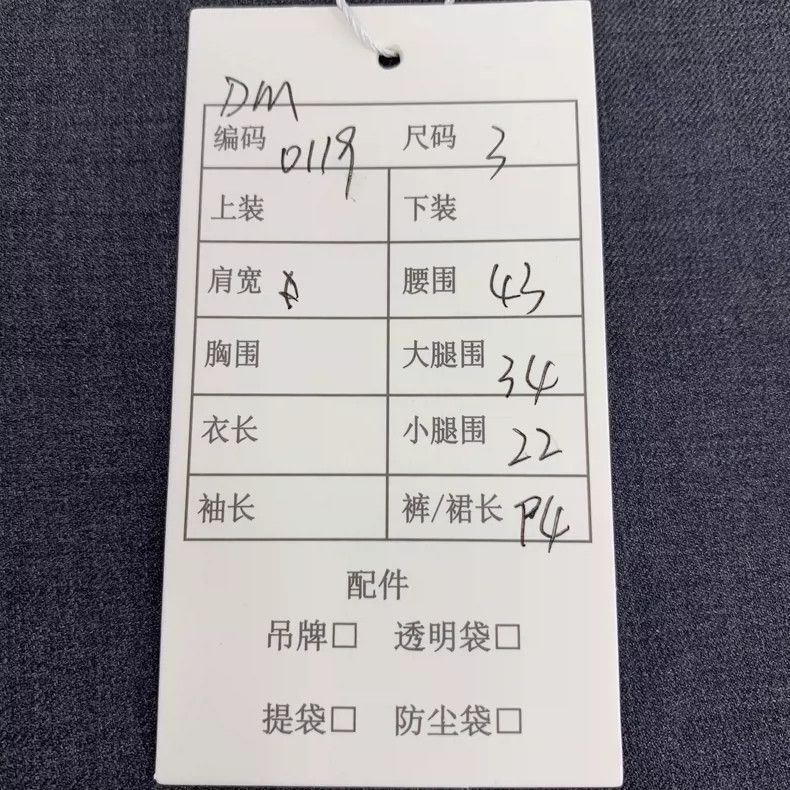 DM
编码 0119 尺码 3
上装 下装
肩宽 腰围 43
胸围 大腿围 34
衣长 小腿围 22
袖长 裤/裙长
配件
吊牌□ 透明袋□
提袋□ 防尘袋□